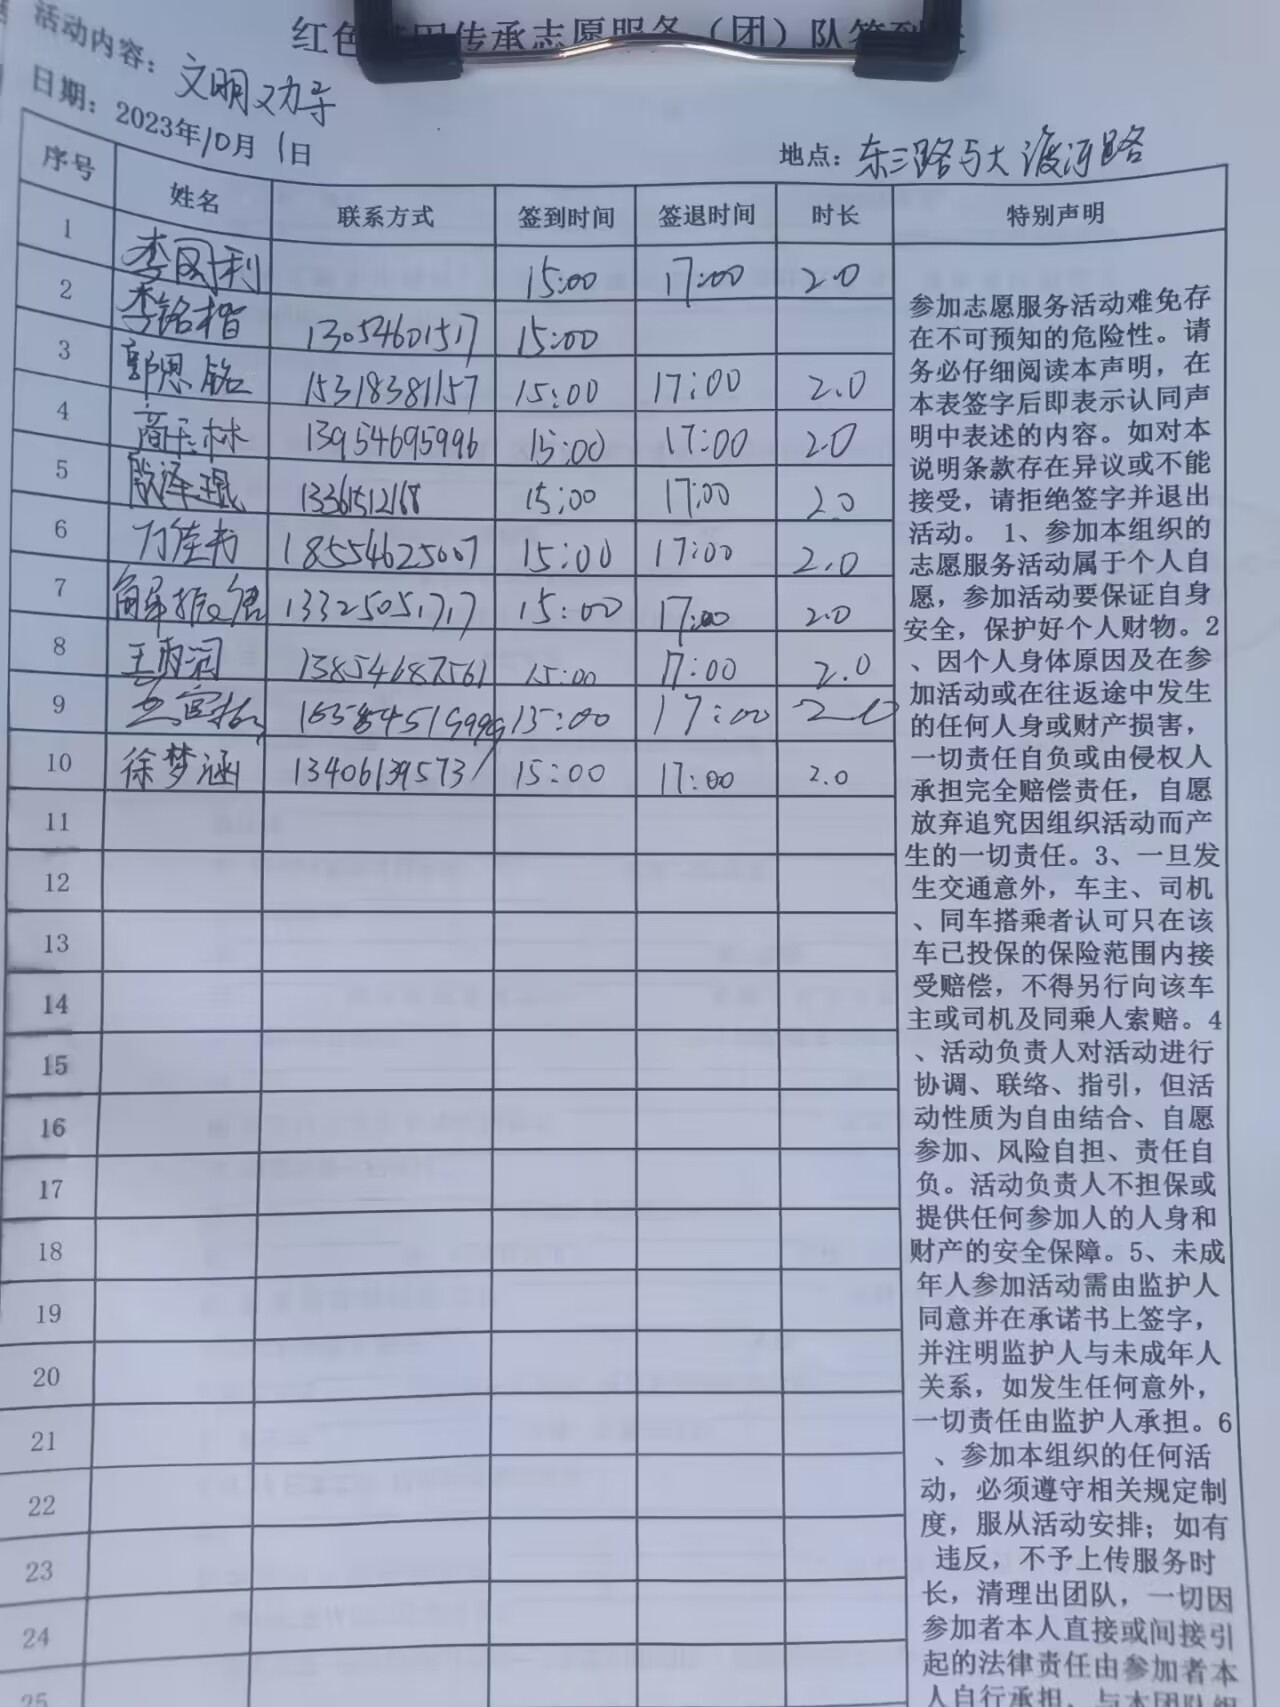 红色基因传承志愿服务（团）队签到表
活动内容：文明劝导
日期：2023年10月1日
地点：东三路与大渡河路
序号 姓名 联系方式 签到时间 签退时间 时长 特别声明
1 李国利 15:00 17:00 2.0
2 李铭楷 13054601517 15:00
3 郭恩铭 15318381157 15:00 17:00 2.0
4 林 13954695996 15:00 17:00 2.0
5 殷泽琨 13361512168 15:00 17:00 2.0
6 万佳书 18554625007 15:00 17:00 2.0
7 解振 13325051717 15:00 17:00 2.0
8 王雨润 13854687561 15:00 17:00 2.0
9 15:00 17:00 2.0
10 徐梦涵 13406139573 15:00 17:00 2.0
11
12
13
14
15
16
17
18
19
20
21
22
23
24
25
参加志愿服务活动难免存
在不可预知的危险性。请
务必仔细阅读本声明，在
本表签字后即表示认同声
明中表述的内容。如对本
说明条款存在异议或不能
接受，请拒绝签字并退出
活动。 1、参加本组织的
志愿服务活动属于个人自
愿，参加活动要保证自身
安全，保护好个人财物。2
、因个人身体原因及在参
加活动或在往返途中发生
的任何人身或财产损害，
一切责任自负或由侵权人
承担完全赔偿责任，自愿
放弃追究因组织活动而产
生的一切责任。3、一旦发
生交通意外，车主、司机
、同车搭乘者认可只在该
车已投保的保险范围内接
受赔偿，不得另行向该车
主或司机及同乘人索赔。4
、活动负责人对活动进行
协调、联络、指引，但活
动性质为自由结合、自愿
参加、风险自担、责任自
负。活动负责人不担保或
提供任何参加人的人身和
财产的安全保障。5、未成
年人参加活动需由监护人
同意并在承诺书上签字，
并注明监护人与未成年人
关系，如发生任何意外，
一切责任由监护人承担。6
、参加本组织的任何活
动，必须遵守相关规定制
度，服从活动安排；如有
违反，不予上传服务时
长，清理出团队，一切因
参加者本人直接或间接引
起的法律责任由参加者本
人自行承担，与本团队